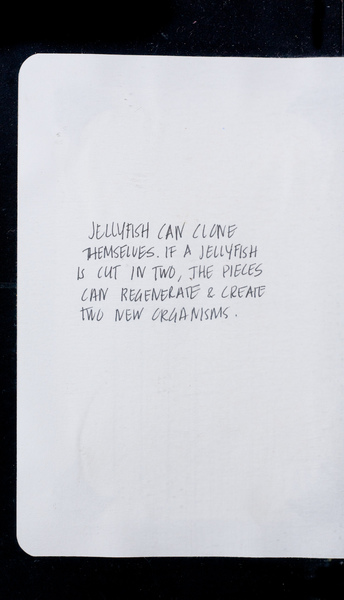 JELLYFISH CAN CLONE
THEMSELVES. IF A JELLYFISH
IS CUT IN TWO, THE PIECES
CAN REGENERATE & CREATE
TWO NEW ORGANISMS.